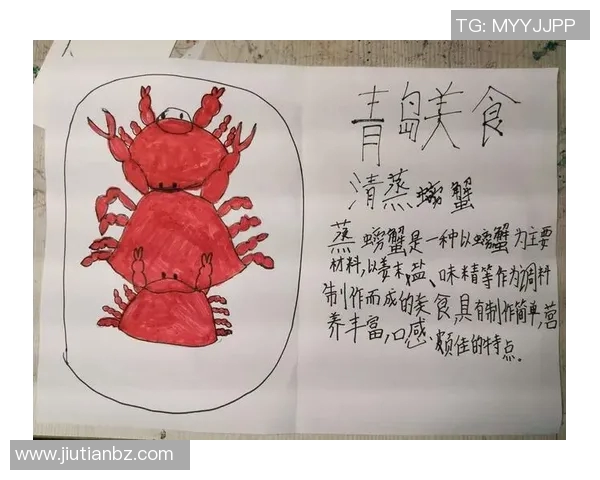 TG: MYYJJPP
青岛美食
清蒸螃蟹
蒸螃蟹是一种以螃蟹为主要
材料,以姜末、盐、味精等作为调料
制作而成的美食,具有制作简单,营
养丰富,口感颇佳的特点。
www.jiutianbz.com